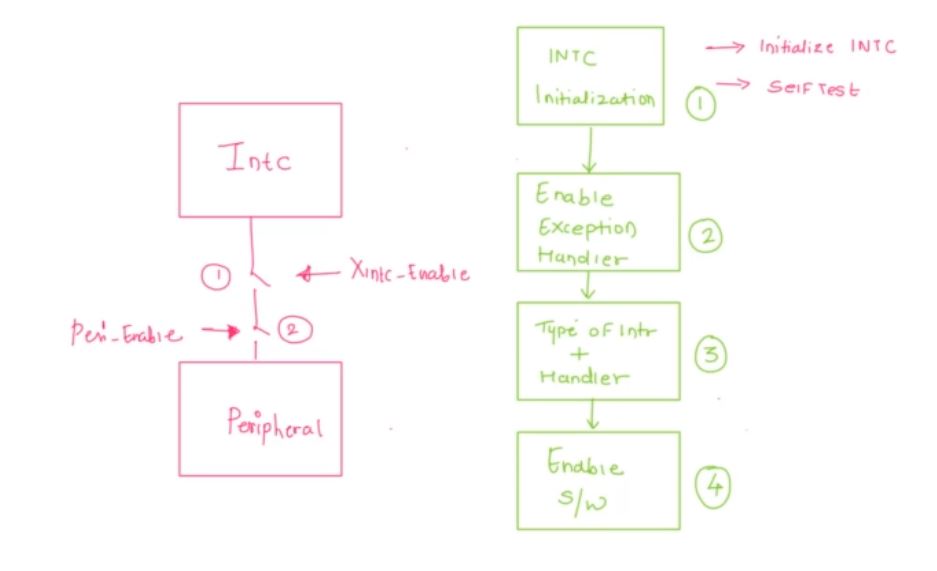 Intc
1
Xintc-Enable
Peri-Enable
2
Peripheral
INTC
Initialization
1
Initialize INTC
Self Test
Enable
Exception
Handler
2
Type of Intr
+
Handler
3
Enable
S/W
4